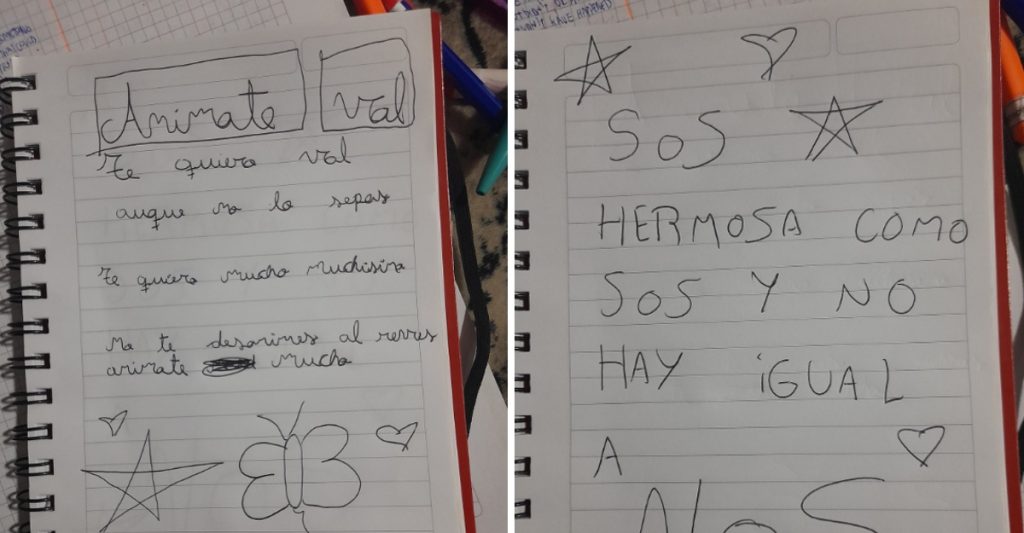 Animate Val
Te quiero val
auque no lo sepas
Te quiero mucho muchisimo
No te desanimes al revres
animate mucho
SOS
HERMOSA COMO
SOS Y NO
HAY IGUAL
A